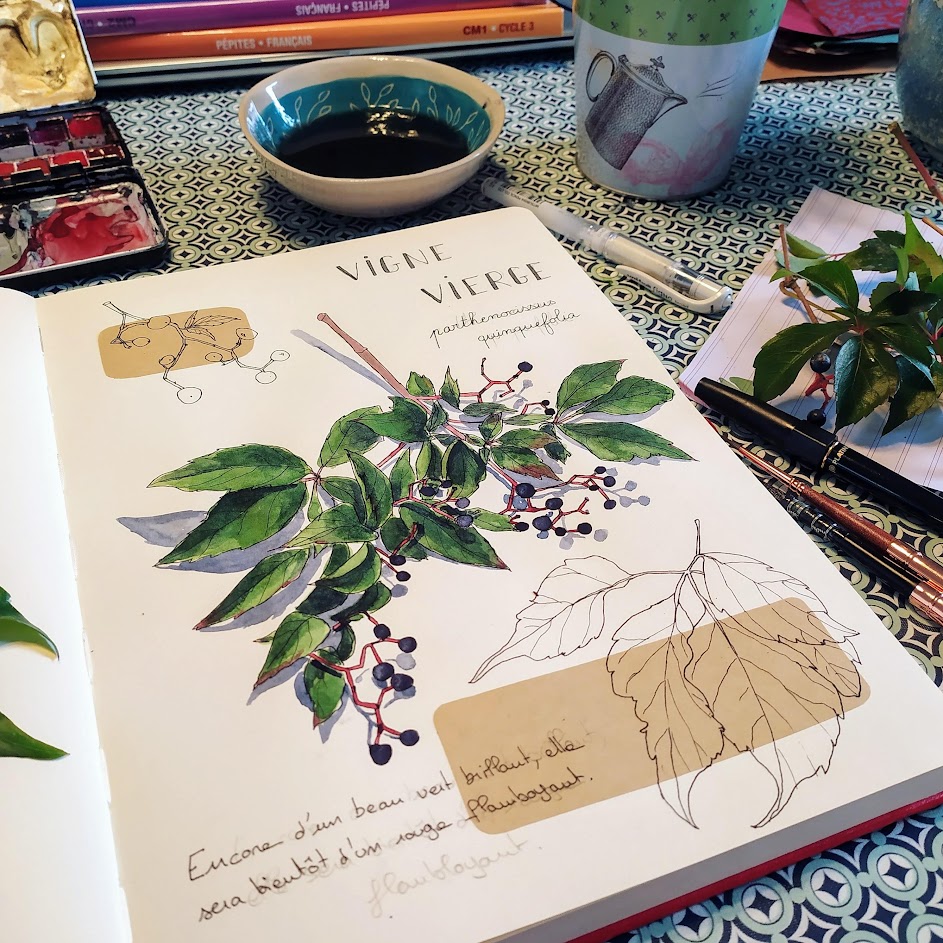 PÉPITES • FRANÇAIS
PÉPITES • FRANÇAIS
CM1 • CYCLE 3
VIGNE
VIERGE
parthenocissus
quinquefolia
Encore d'un beau vert brillant, elle
sera bientôt d'un rouge flamboyant.
flamboyant.